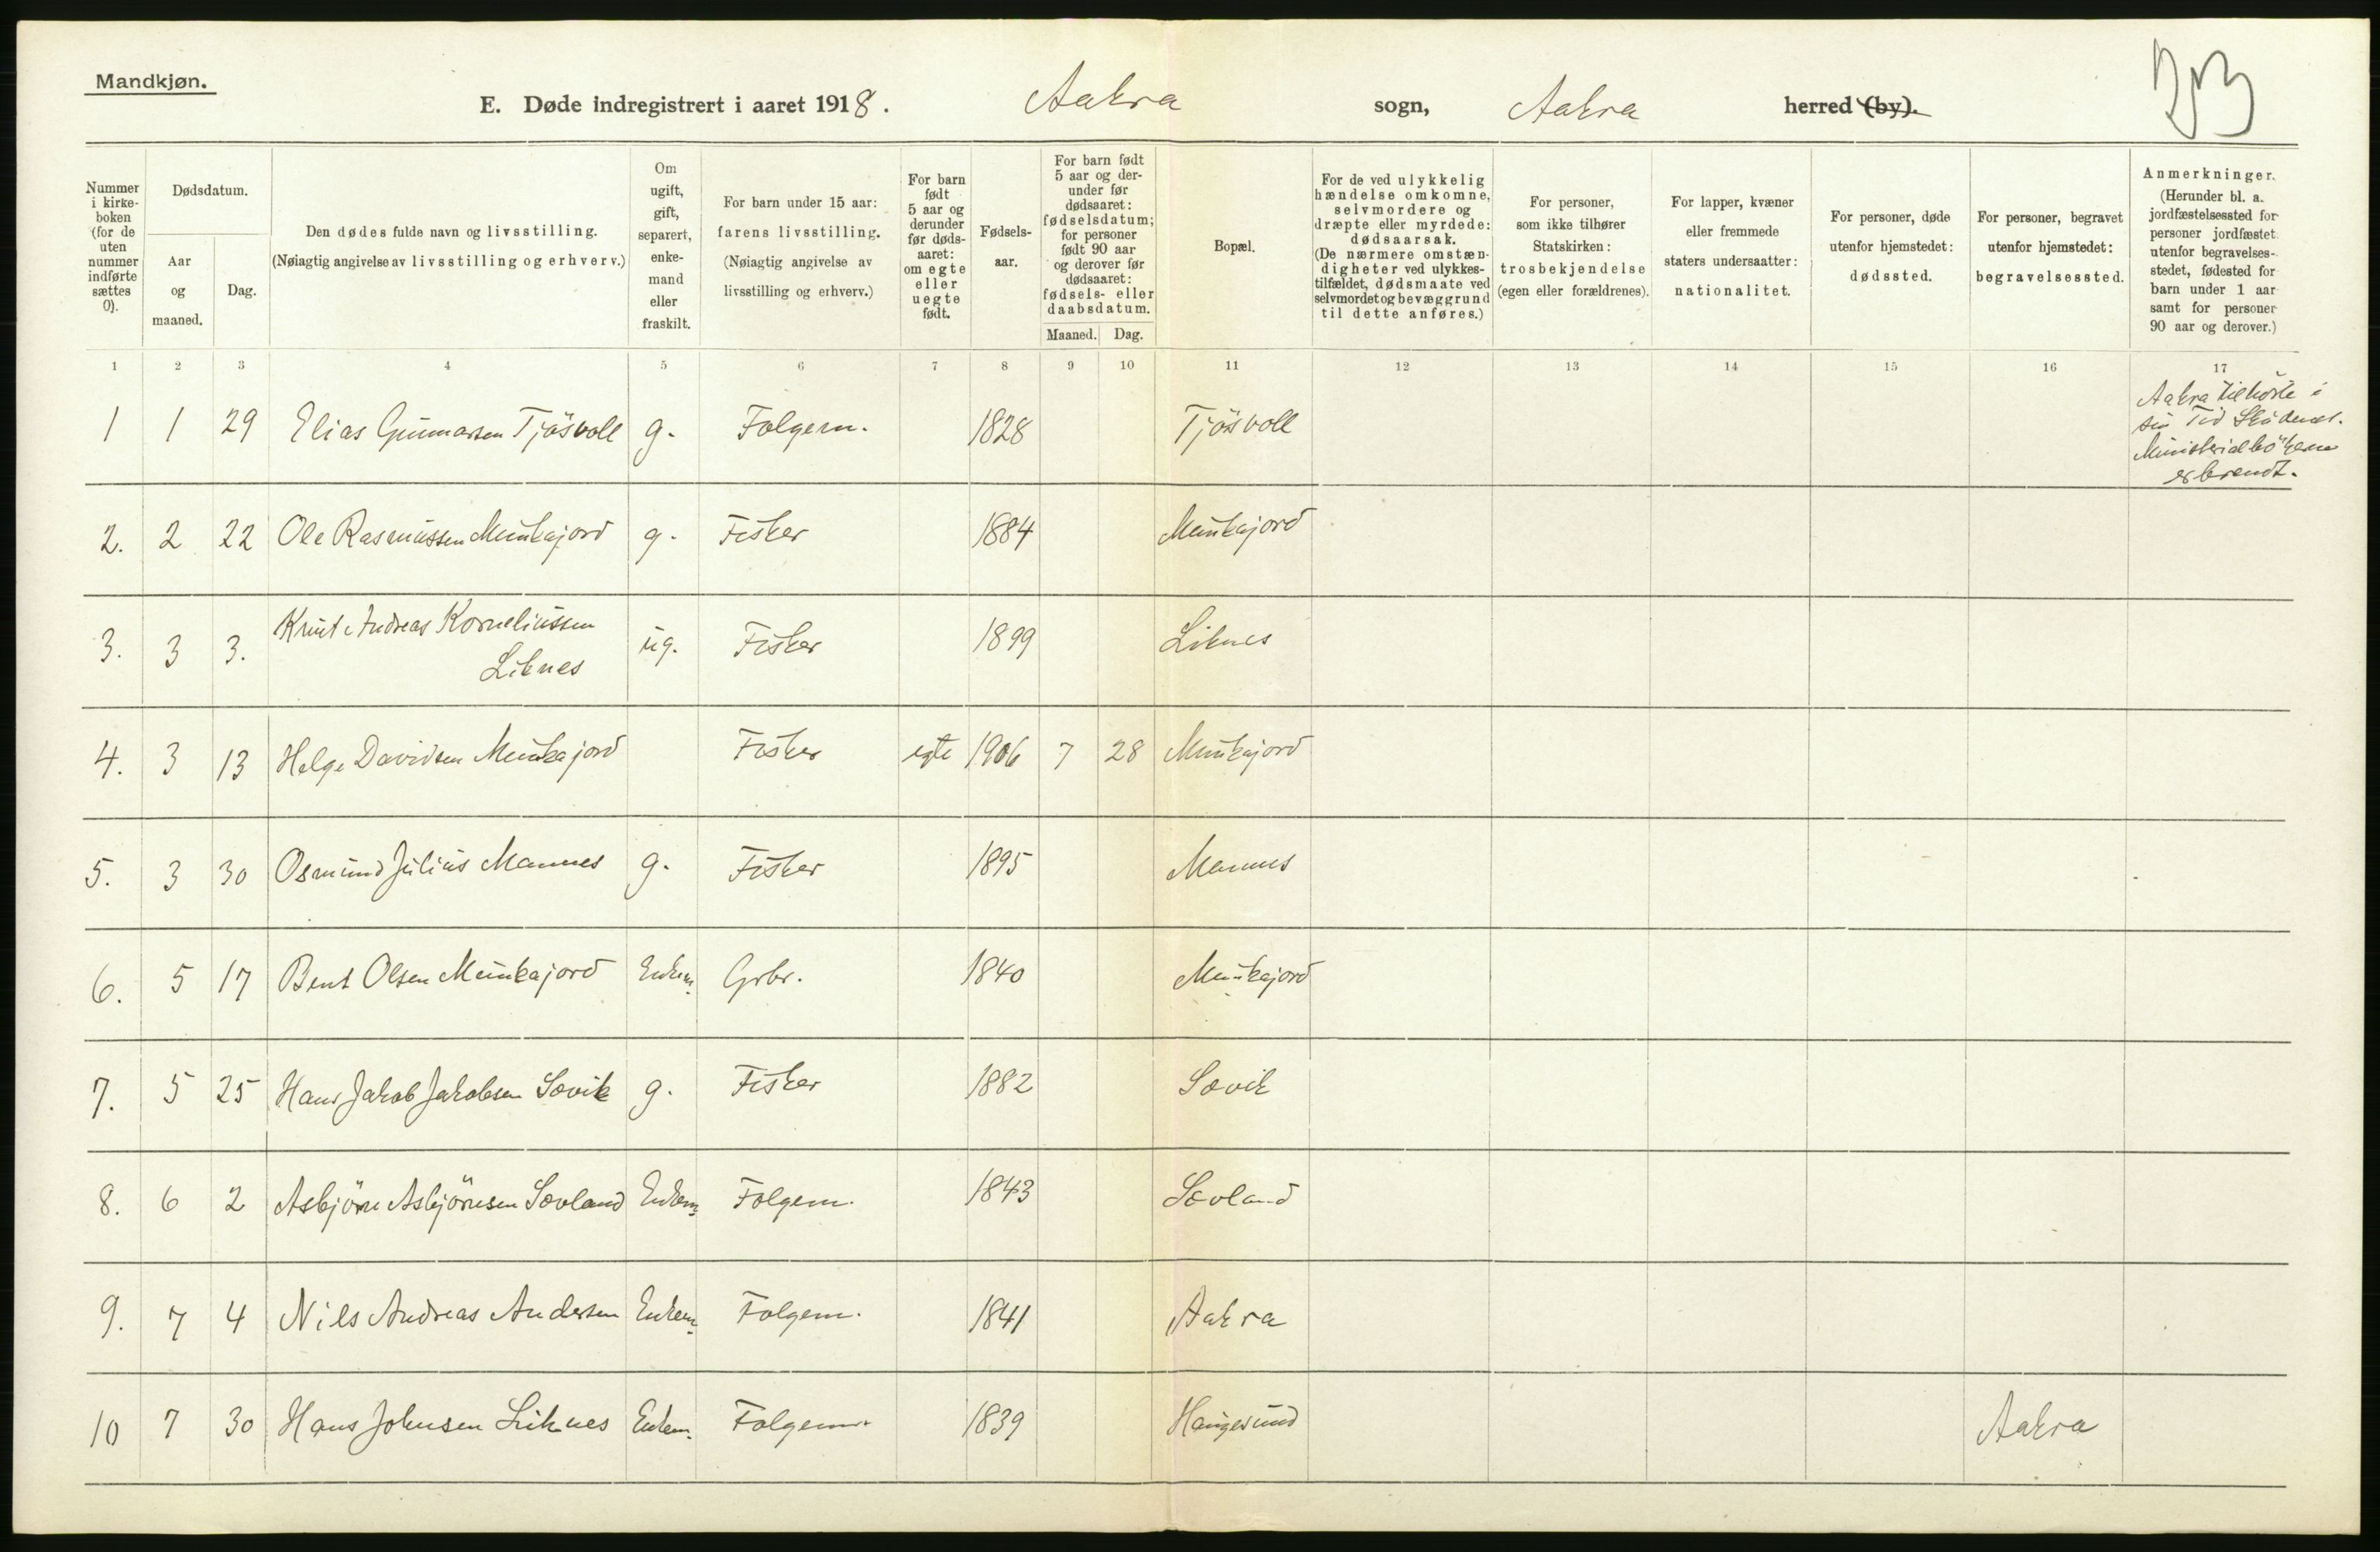 Mandkjøn.
E. Døde indregistrert i aaret 1918. Aakra sogn, Aakra herred (by).
Nummer i kirke-boken (for de uten nummer indførte sættes 0).
Dødsdatum.
Aar og maaned.
Dag.
Den dødes fulde navn og livsstilling.
(Nøiagtig angivelse av livsstilling og erhverv.)
Om ugift, gift, separert, enke-mand eller fraskilt.
For barn under 15 aar: farens livsstilling.
(Nøiagtig angivelse av livsstilling og erhverv.)
For barn født 5 aar og derunder før døds-aaret: om egte eller uegte født.
Fødsels-aar.
For barn født 5 aar og der-under før dødsaaret: fødselsdatum; for personer født 90 aar og derover før dødsaaret: fødsels- eller daabsdatum.
Maaned. Dag.
Bopæl.
For de ved ulykkelig hændelse omkomne, selvmordere og dræpte eller myrdede: dødsaarsak.
(De nærmere omstæn-digheter ved ulykkes-tilfældet, dødsmaate ved selvmordet og bevæggrund til dette anføres.)
For personer, som ikke tilhører Statskirken: trosbekjendelse (egen eller forældrenes).
For lapper, kvæner eller fremmede staters undersaatter: nationalitet.
For personer, døde utenfor hjemstedet: dødssted.
For personer, begravet utenfor hjemstedet: begravelsessted.
Anmerkninger.
(Herunder bl. a. jordfæstelsessted for personer jordfæstet utenfor begravelses-stedet, fødested for barn under 1 aar samt for personer 90 aar og derover.)
1 2 3 4 5 6 7 8 9 10 11 12 13 14 15 16 17
1 1 29 Elias Gunnarsen Tjösvoll g. Folgem. 1828 Tjösvoll
Aakra tilhörte i
sin Tid Skudenes.
Ministerialbökerne
er brendt.
2. 2 22 Ole Rasmussen Munkajord g. Fisker 1884 Munkajord
3. 3 3. Knut Andreas Korneliussen
Liknes ug. Fisker 1899 Liknes
4. 3 13 Helge Davidsen Munkajord Fisker egte 1906 7 28 Munkajord
5. 3 30 Osmund Julius Mannes g. Fisker 1895 Mannes
6. 5 17 Bent Olsen Munkajord Enkem. Grbr. 1840 Munkajord
7. 5 25 Hans Jakob Jakobsen Sævik g. Fisker 1882 Sævik
8. 6 2 Asbjörn Asbjörnsen Sævland Enkem. Folgem. 1843 Sævland
9. 7 4 Nils Andreas Andersen Enkem. Folgem. 1841 Aakra
10 7 30 Hans Johnsen Liknes Enkem. Folgem. 1839 Haugesund Aakra